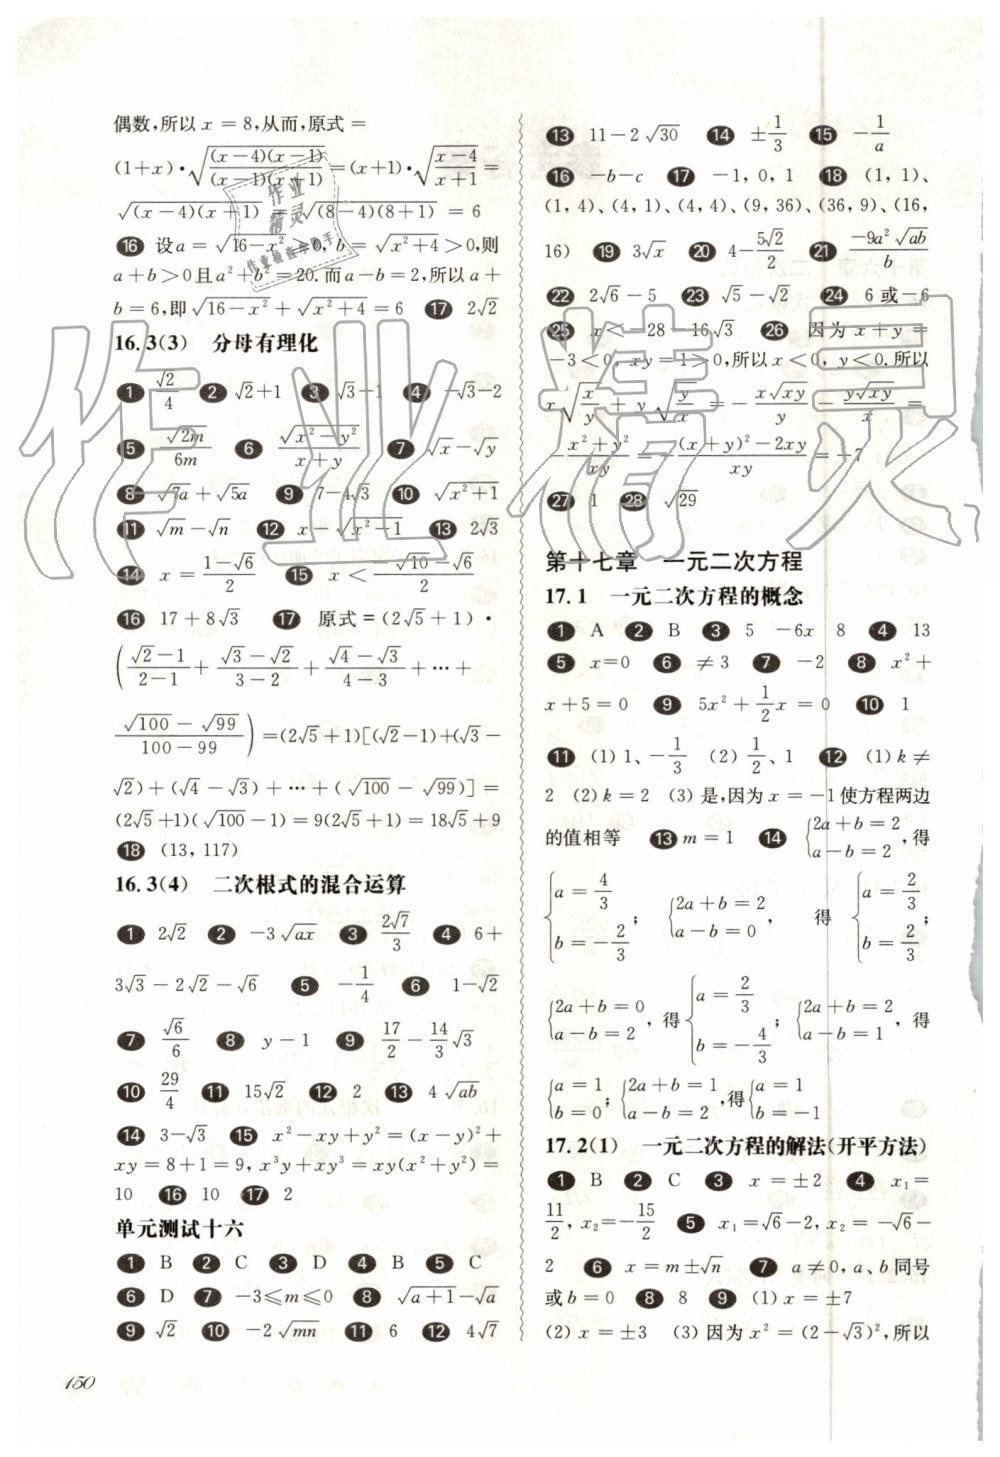 偶数,所以 x = 8,从而,原式 =
(1+x)·√((x-4)(x-1)/((x-1)(x+1)))=(x+1)·√((x-4)/(x+1))=
√((x-4)(x+1))=√((8-4)(8+1)) = 6
16 设 a = √(16-x²)≥0, b = √(x²+4)>0,则
a+b>0且a²+b²=20.而a-b=2,所以a+
b=6,即√(16-x²)+√(x²+4)=6 17 2√2
16.3(3) 分母有理化
1 √2/4 2 √2+1 3 √3-1 4 -√3-2
5 √(2m)/6m 6 √(x²-y²)/(x+y) 7 √x-√y
8 √(7a)+√(5a) 9 7-4√3 10 √(x²+1)
11 √m-√n 12 x-√(x²-1) 13 2√3
14 x=(1-√6)/2 15 x<(-√10-√6)/2
16 17+8√3 17 原式=(2√5+1)·
((√2-1)/(2-1)+(√3-√2)/(3-2)+(√4-√3)/(4-3)+…+
(√100-√99)/(100-99))=(2√5+1)[(√2-1)+(√3-
√2)+(√4-√3)+…+(√100-√99)]=
(2√5+1)(√100-1)=9(2√5+1)=18√5+9
18 (13,117)
16.3(4) 二次根式的混合运算
1 2√2 2 -3√(ax) 3 2√7/3 4 6+
3√3-2√2-√6 5 -1/4 6 1-√2
7 √6/6 8 y-1 9 17/2-14/3√3
10 29/4 11 15√2 12 2 13 4√(ab)
14 3-√3 15 x²-xy+y²=(x-y)²+
xy=8+1=9, x³y+xy³=xy(x²+y²)=
10 16 10 17 2
单元测试十六
1 B 2 C 3 D 4 B 5 C
6 D 7 -3≤m≤0 8 √(a+1)-√a
9 √2 10 -2√(mn) 11 6 12 4√7
150
13 11-2√30 14 ±1/3 15 -1/a
16 -b-c 17 -1,0,1 18 (1,1)、
(1,4)、(4,1)、(4,4)、(9,36)、(36,9)、(16,
16) 19 3√x 20 4-5√2/2 21 -9a²√(ab)/b
22 2√6-5 23 √5-√2 24 6或-6
25 x<-28-16√3 26 因为x+y=
-3<0, xy=1>0,所以x<0, y<0.所以
x√(x/y)+y√(y/x)=-x√(xy)/y-y√(xy)/x=
-(x²+y²)/xy=-((x+y)²-2xy)/xy=-7
27 1 28 √29
第十七章 一元二次方程
17.1 一元二次方程的概念
1 A 2 B 3 5 -6x 8 4 13
5 x=0 6 ≠3 7 -2 8 x²+
x+5=0 9 5x²+1/2x=0 10 1
11 (1) 1、-1/3 (2) 1/2、1 12 (1) k≠
2 (2) k=2 (3) 是,因为x=-1使方程两边
的值相等 13 m=1 14 {2a+b=2, a-b=2,得
{a=4/3, b=-2/3; {2a+b=2, a-b=0, 得 {a=2/3, b=2/3;
{2a+b=0, a-b=2, 得{a=2/3, b=-4/3; {2a+b=2, a-b=1, 得
{a=1, b=0; {2a+b=1, a-b=2, 得{a=1, b=-1
17.2(1) 一元二次方程的解法(开平方法)
1 B 2 C 3 x=±2 4 x₁=
11/2, x₂=-15/2 5 x₁=√6-2, x₂=-√6-
2 6 x=m±√n 7 a≠0, a、b同号
或b=0 8 8 9 (1) x=±7
(2) x=±3 (3) 因为x²=(2-√3)²,所以
作业精灵
作业精灵
作业检查小助手